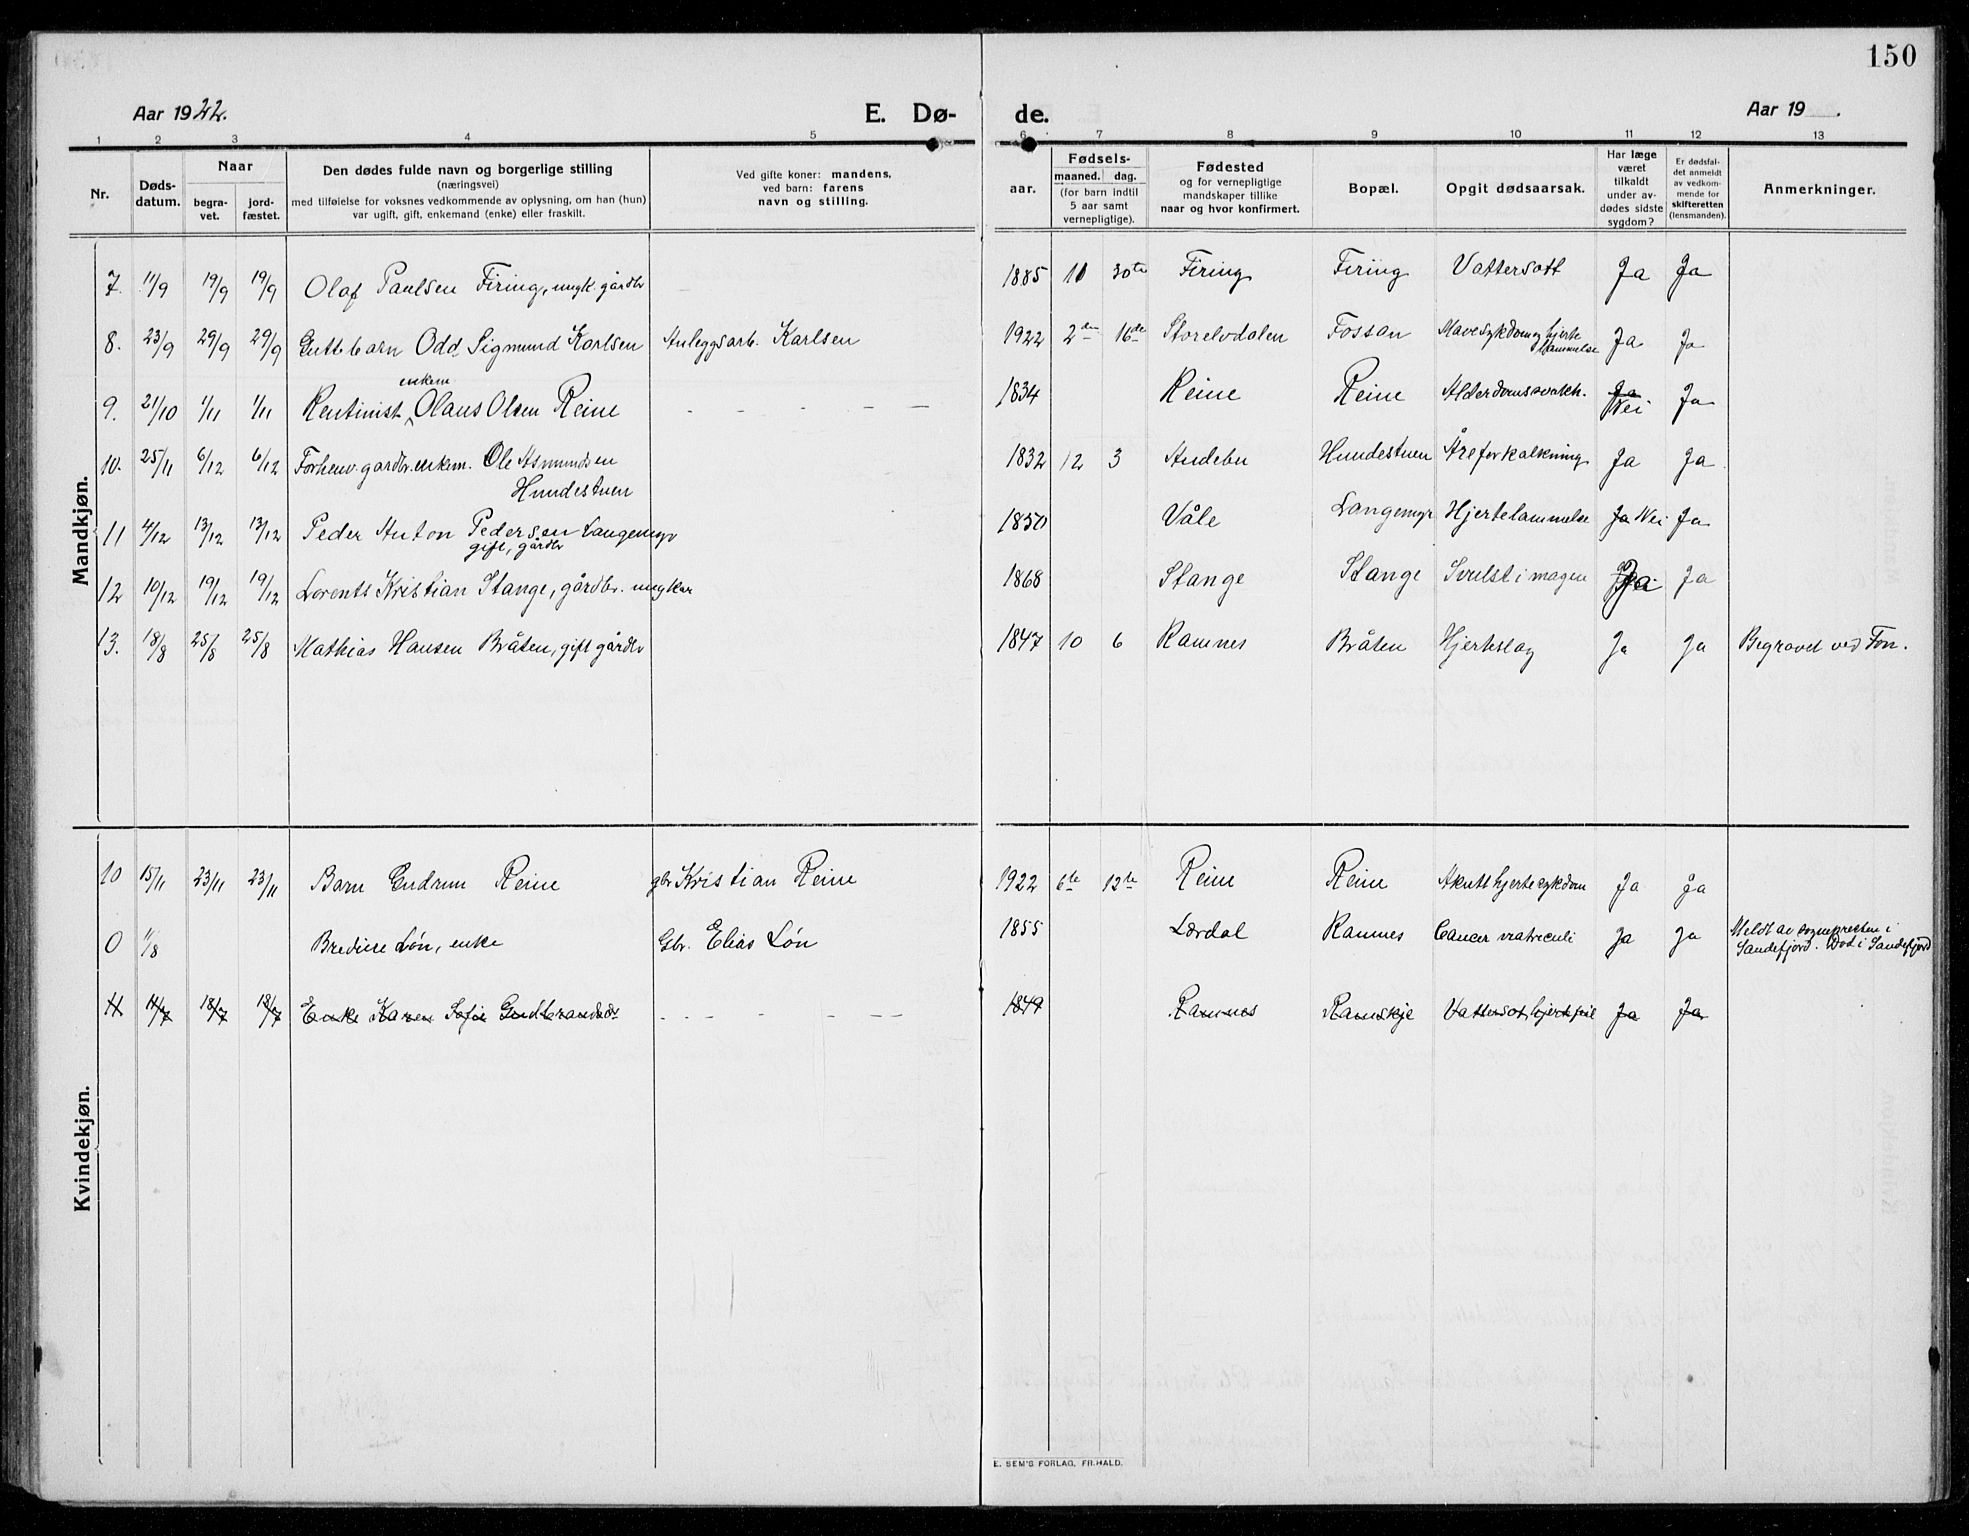 150
Aar 1922.
E. Dø-
de.
Aar 19 .
1 2 3 4 5 6 7 8 9 10 11 12 13
Nr.
Døds-
datum.
Naar
begra-
vet.
jord-
fæstet.
Den dødes fulde navn og borgerlige stilling
(næringsvei)
med tilføielse for voksnes vedkommende av oplysning, om han (hun)
var ugift, gift, enkemand (enke) eller fraskilt.
Ved gifte koner: mandens,
ved barn: farens
navn og stilling.
aar.
Fødsels-
maaned. dag.
(for barn indtil
5 aar samt
vernepligtige).
Fødested
og for vernepligtige
mandskaper tillike
naar og hvor konfirmert.
Bopæl.
Opgit dødsaarsak.
Har læge
været
tilkaldt
under av-
dødes sidste
sygdom?
Er dødsfal-
det anmeldt
av vedkom-
mende for
skifteretten
(lensmanden).
Anmerkninger.
Mandkjøn.
7. 11/9 19/9 19/9 Olaf Paulsen Firing, ungk. gårdbr 1885 11 30te Firing Firing Vattersott Ja Ja
8. 23/9 29/9 29/9 Guttebarn Odd Sigmund Karlsen Anleggsarb. Karlsen 1922 2den 16de Storelvdalen Fossan Mavesykdom og hjerte
lammelse Ja Ja
enkem
9. 21/10 1/11 1/11 Rentinist Olaus Olsen Reine - - - - - 1834 Reine Reine Alderdomssvakh. Ja
Nei Ja
10. 25/11 6/12 6/12 Forhenv. gardbr. enkem. Ole Asmundsen
Hundestuen 1832 12 3 Andebu Hundestuen Åreforkalkning Ja Ja
11 4/12 13/12 13/12 Peder Anton Pedersen Langemyr
gift, gårdbr 1850 Våle Langemyr Hjertelammelse Ja Nei Ja
12 10/12 19/12 19/12 Lorents Kristian Stange, gårdbr. ungkar 1868 Stange Stange Svulst i magen Ja Ja
13. 18/8 25/8 25/8 Mathias Hansen Bråten, gift gårdbr 1847 10 6 Ramnes Bråten Hjerteslag Ja Ja Begravet ved Fon.
Kvindekjøn.
10 15/11 23/11 23/11 Barn Gudrun Reine gbr Kristian Reine 1922 6te 12te Reine Reine Akutt hjertesykdom Ja Ja
0 11/8 Brediere Løn, enke Gbr. Elias Løn 1855 Lærdal Ramnes Cancer ventriculi Ja Ja Meldt av sognepresten i
Sandefjord. Død i Sandefjord
11 11/7 18/7 18/7 Enke Karen Sofie Gudbrandsdr - - - - - - 1849 Ramnes Ramskje Vattersot, hjertefeil Ja Ja
E. SEM'S FORLAG, FR.HALD.